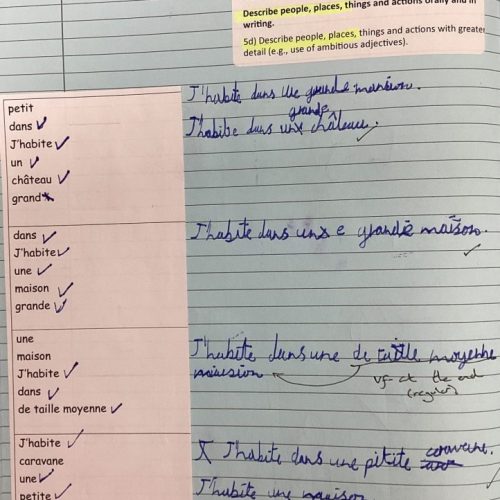 Describe people, places, things and actions orally and in
writing.
5d) Describe people, places, things and actions with greater
detail (e.g., use of ambitious adjectives).
petit
dans
J'habite
un
château
grand
J'habite dans une grande maision.
grande
J'habibe dans un château.
dans
J'habite
une
maison
grande
J'habite dans une grande maison.
une
maison
J'habite
dans
de taille moyenne
J'habite dans une de taille moyenne
maision
at the end
(regular)
J'habite
caravane
une
petite
J'habite dans une pitite caravane.
J'habite une maison